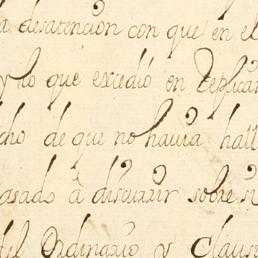 a desatencion con que en el
y lo que excedió en replicar
cho de que no havia hall
asado â discurrir sobre si
del Ordinario y Claus